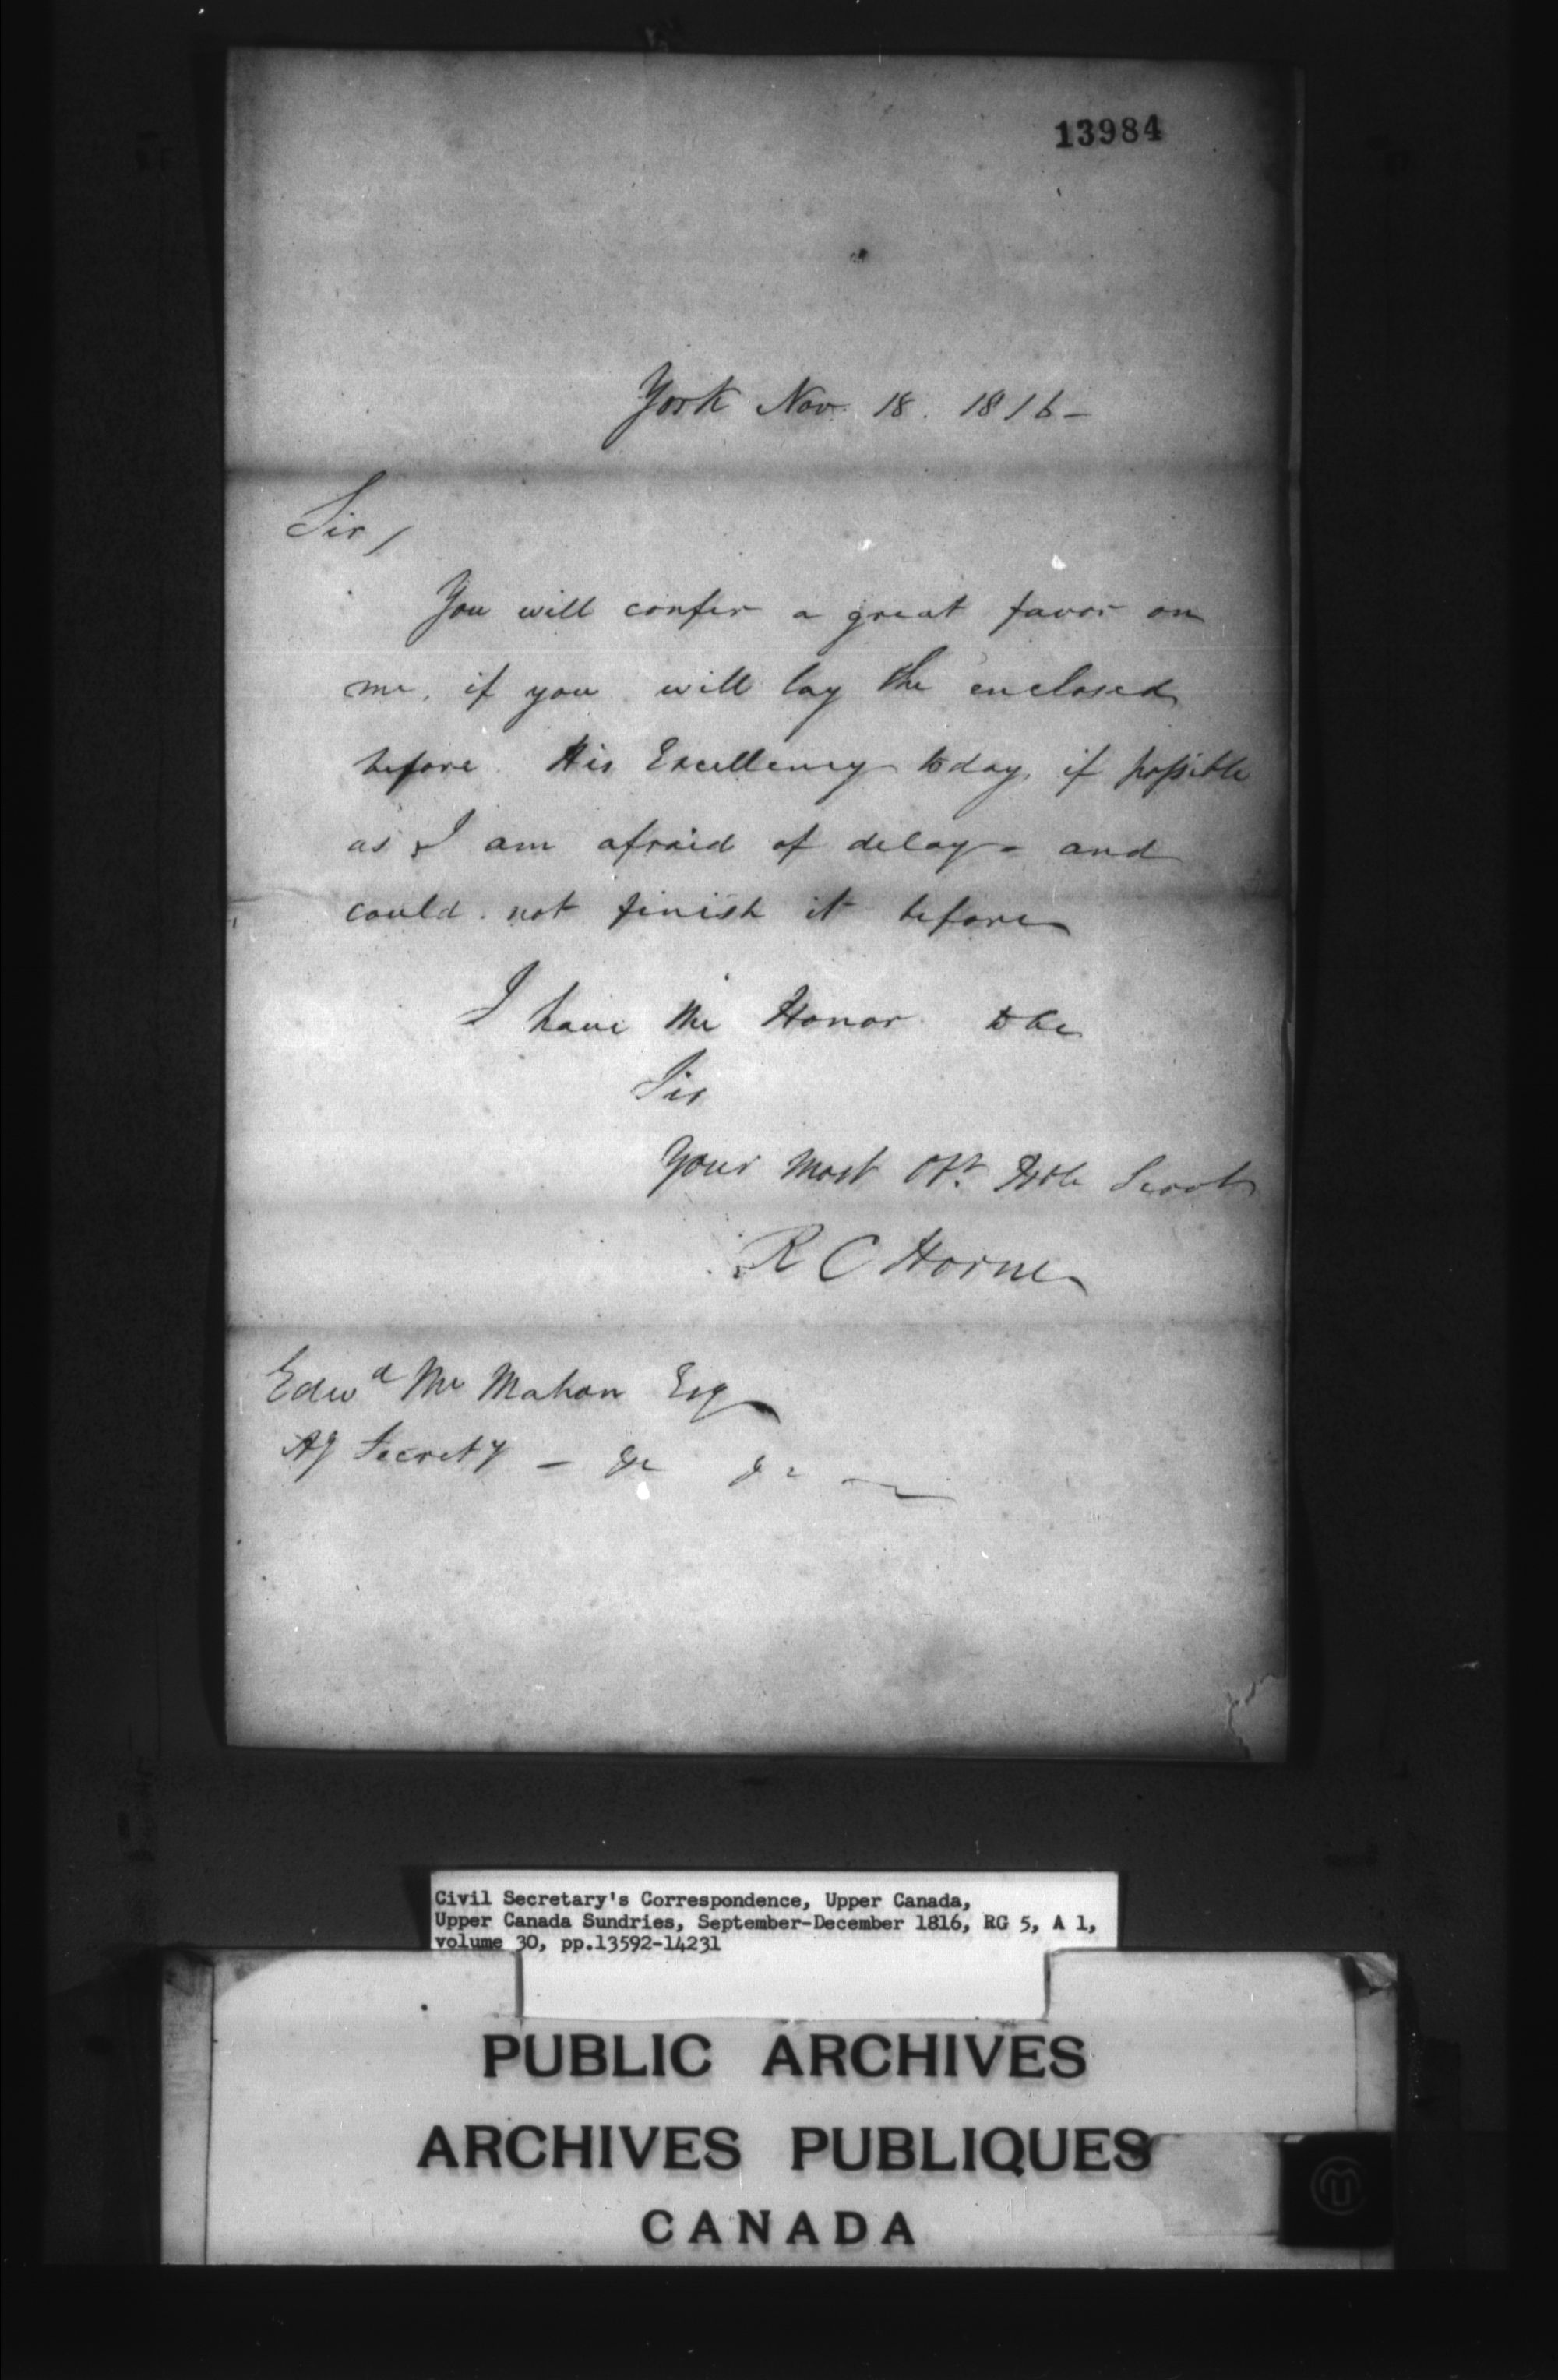 13984
York Nov. 18. 1816 -
Sir,
You will confer a great favor on
me, if you will lay the enclosed
before His Excellency today, if possible
as I am afraid of delay - and
could not finish it before
I have the Honor to be
Sir
Your Most Obt. Hble Servt
R C Horne
Edwd Mc Mahon Esq
Ag Secrety - &c &c
Civil Secretary's Correspondence, Upper Canada,
Upper Canada Sundries, September-December 1816, RG 5, A 1,
volume 30, pp.13592-14231
PUBLIC ARCHIVES
ARCHIVES PUBLIQUES
CANADA